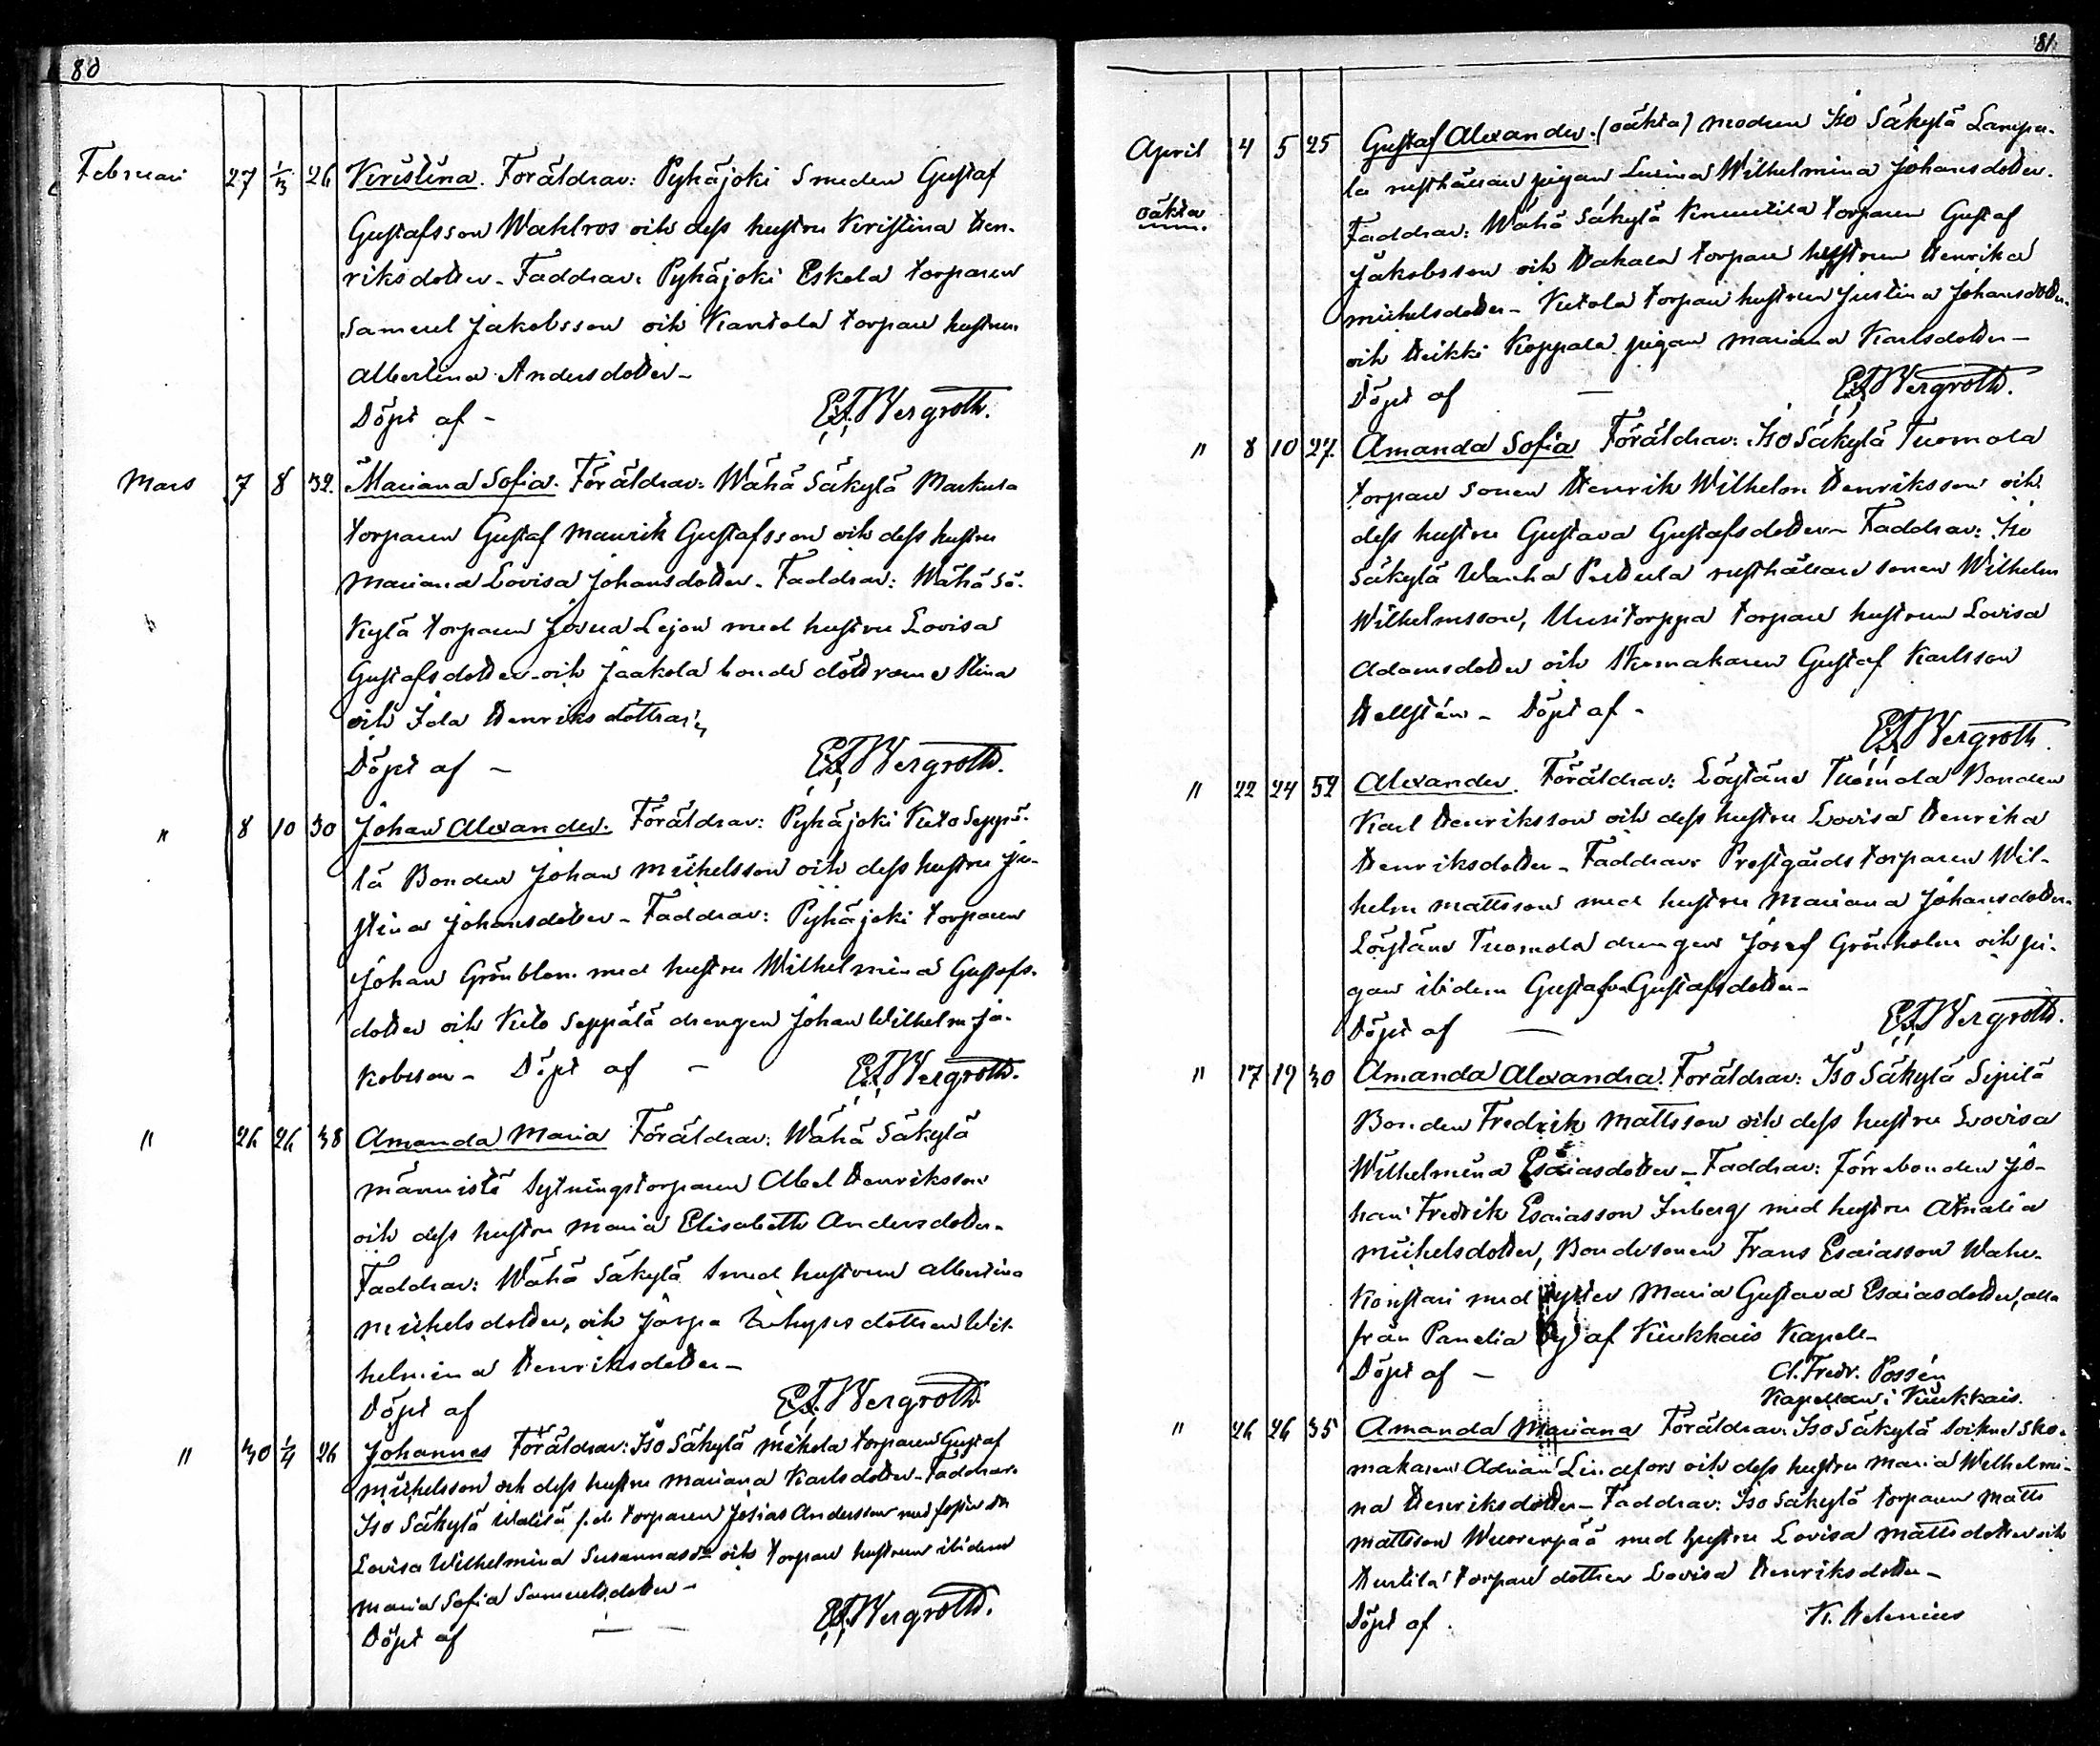 80
Februari 27 1/3 26 Kristina. Föräldrar: Pyhäjoki Smeden Gustaf
Gustafsson Wahlros och dess hustru Kristina Hen-
riksdotter - Faddrar: Pyhäjoki Eskola torparen
Samuel Jakobsson och Kantola torpare hustrun
Albertina Andersdotter -
Döpt af - E.F. Bergroth.
Mars 7 8 32. Mariana Sofia. Föräldrar: Wähä Säkylä Markula
torparen Gustaf Maurik Gustafsson och dess hustru
Mariana Lovisa Johansdotter - Faddrar: Wähä Sä-
kylä torparen Josua Lejon med hustru Lovisa
Gustafsdotter - och Jaakola bonde döttrarne Stina
och Ida Henriks döttrar,
Döpt af - E.F. Bergroth.
" 8 10 30 Johan Alexander. Föräldrar: Pyhäjoki Keto Seppä-
lä Bonden Johan Michelsson och dess hustru Ju-
stina Johansdotter - Faddrar: Pyhäjoki torparen
Johan Grönblom med hustru Wilhelmina Gustafs-
dotter och Keto Seppälä drengen Johan Wilhelm Ja-
kobsson - Döpt af - E.F. Bergroth.
" 26 26 38 Amanda Maria Föräldrar: Wähä Säkylä
Männistö Sytningstorparen Abel Henriksson
och dess hustru Maria Elisabeth Andersdotter -
Faddrar: Wähä Säkylä Smed hustrun Albertina
Michelsdotter, och Jaspa Inhyses dottren Wil-
helmina Henriksdotter -
Döpt af E.F. Bergroth.
" 30 1/4 26 Johannes Föräldrar: Iso Säkylä Mikola torparen Gustaf
Michelsson och dess hustru Mariana Karlsdotter - Faddrar:
Iso Säkylä f.d. torparen Josias Andersson med
Lovisa Wilhelmina Susannasdr och torpare hustrun ibidem
Maria Sofia Samuelsdotter -
Döpt af - - E.F. Bergroth.
81.
April 4 5 25 Gustaf Alexander. (oäkta) modren Iso Säkylä Lampo-
oäkta
la rusthållare pigan Lusina Wilhelmina Johansdotter.
Faddrar: Wähä Säkylä Knuutila torparen Gustaf
Jakobsson och Hakala torpare hustrun Henrika
Michelsdotter - Ketola torpare hustrun Justina Johansdotter
och Heikki Koppala pigan Mariana Karlsdotter -
Döpt af - E.F. Bergroth.
" 8 10 27. Amanda Sofia Föräldrar: Iso Säkylä Tuomola
torpare sonen Henrik Wilhelm Henriksson och
dess hustru Gustava Gustafsdotter - Faddrar: Iso
Säkylä Wanha Prihula rusthållare sonen Wilhelm
Wilhelmsson, Uusitorppa torpare hustrun Lovisa
Adamsdotter och Skomakaren Gustaf Karlsson
Hellstén - Döpt af - E.F. Bergroth.
" 22 24 52 Alexander. Föräldrar: Löytäne Tuomola Bonden
Karl Henriksson och dess hustru Lovisa Henrika
Henriksdotter - Faddrar: Prestgårds torparen Wil-
helm Mattsson med hustru Mariana Johansdotter
Löytäne Tuomola drengen Josef Grönholm och pi-
gan ibidem Gustafva Gustafsdotter -
Döpt af - E.F. Bergroth.
" 17 19 30 Amanda Alexandra. Föräldrar: Iso Säkylä Sipilä
Bonden Fredrik Mattsson och dess hustru Lovisa
Wilhelmina Esaiasdotter - Faddrar: Förre bonden Jo-
han Fredrik Esaiasson Inberg med hustru Amalia
Michelsdotter, Bondesonen Frans Esaiasson Wahe-
Konstari med syster Maria Gustava Esaiasdotter, alla
från Panelia by af Kiukkais Kapell -
Döpt af - A. Fredr. Possén
Kapellan i Kiukkais.
" 26 26 35 Amanda Mariana Föräldrar: Iso Säkylä Sko-
makaren Adrian Lindfors och dess hustru Maria Wilhelmi-
na Henriksdotter - Faddrar: Iso Säkylä torparen Matts
Mattsson Wuorenpää med hustru Lovisa Mattsdotter och
Huhtila torpare dottren Lovisa Henriksdotter -
Döpt af. K. Helenius